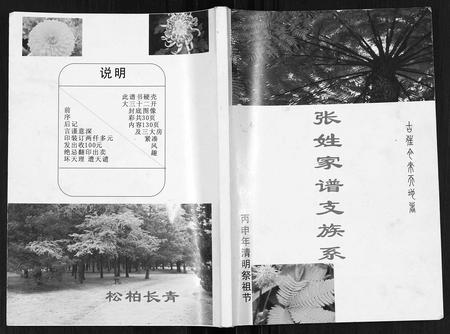 说明
此谱书硬壳
大三十二开
前 封底图像
序 彩共30页
后记 内容130页
言谨意深 及三大房
印装订两仟多元 繁涛
发出收100元 风
绝忌翻印出卖 趣
坏天理 遭天谴
松柏长青
丙申年清明祭祖节
张姓家谱支族系